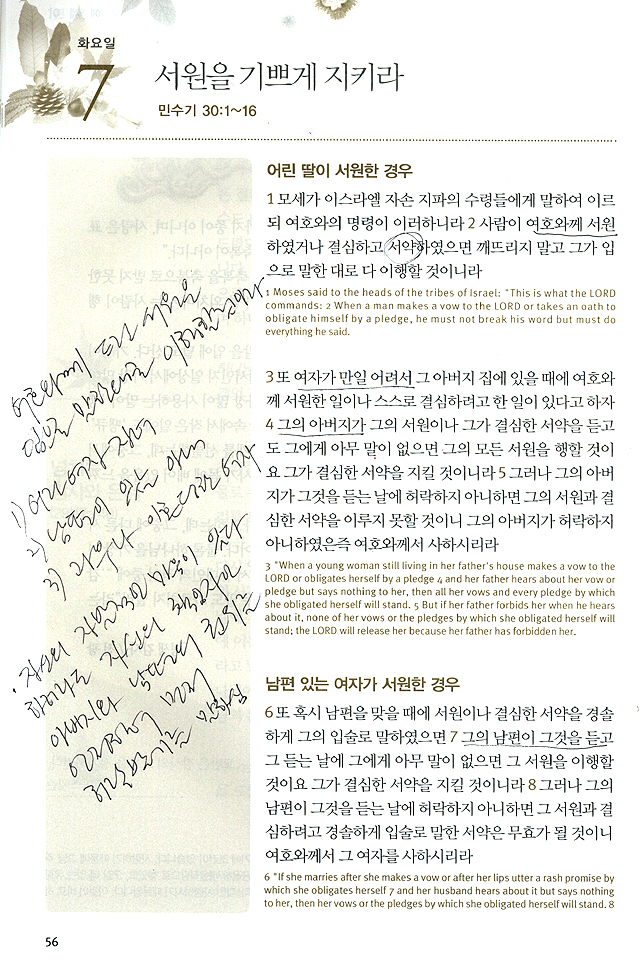 화요일
7
서원을 기쁘게 지키라
민수기 30:1~16
어린 딸이 서원한 경우
1 모세가 이스라엘 자손 지파의 수령들에게 말하여 이르
되 여호와의 명령이 이러하니라 2 사람이 여호와께 서원
하였거나 결심하고 서약하였으면 깨뜨리지 말고 그가 입
으로 말한 대로 다 이행할 것이니라
1 Moses said to the heads of the tribes of Israel: "This is what the LORD
commands: 2 When a man makes a vow to the LORD or takes an oath to
obligate himself by a pledge, he must not break his word but must do
everything he said.
3 또 여자가 만일 어려서 그 아버지 집에 있을 때에 여호와
께 서원한 일이나 스스로 결심하려고 한 일이 있다고 하자
4 그의 아버지가 그의 서원이나 그가 결심한 서약을 듣고
도 그에게 아무 말이 없으면 그의 모든 서원을 행할 것이
요 그가 결심한 서약을 지킬 것이니라 5 그러나 그의 아버
지가 그것을 듣는 날에 허락하지 아니하면 그의 서원과 결
심한 서약을 이루지 못할 것이니 그의 아버지가 허락하지
아니하였은즉 여호와께서 사하시리라
3 "When a young woman still living in her father's house makes a vow to the
LORD or obligates herself by a pledge 4 and her father hears about her vow or
pledge but says nothing to her, then all her vows and every pledge by which
she obligated herself will stand. 5 But if her father forbids her when he hears
about it, none of her vows or the pledges by which she obligated herself will
stand; the LORD will release her because her father has forbidden her.
남편 있는 여자가 서원한 경우
6 또 혹시 남편을 맞을 때에 서원이나 결심한 서약을 경솔
하게 그의 입술로 말하였으면 7 그의 남편이 그것을 듣고
그 듣는 날에 그에게 아무 말이 없으면 그 서원을 이행할
것이요 그가 결심한 서약을 지킬 것이니라 8 그러나 그의
남편이 그것을 듣는 날에 허락하지 아니하면 그 서원과 결
심하려고 경솔하게 입술로 말한 서약은 무효가 될 것이니
여호와께서 그 여자를 사하시리라
6 "If she marries after she makes a vow or after her lips utter a rash promise by
which she obligates herself 7 and her husband hears about it but says nothing
to her, then her vows or the pledges by which she obligated herself will stand. 8
56